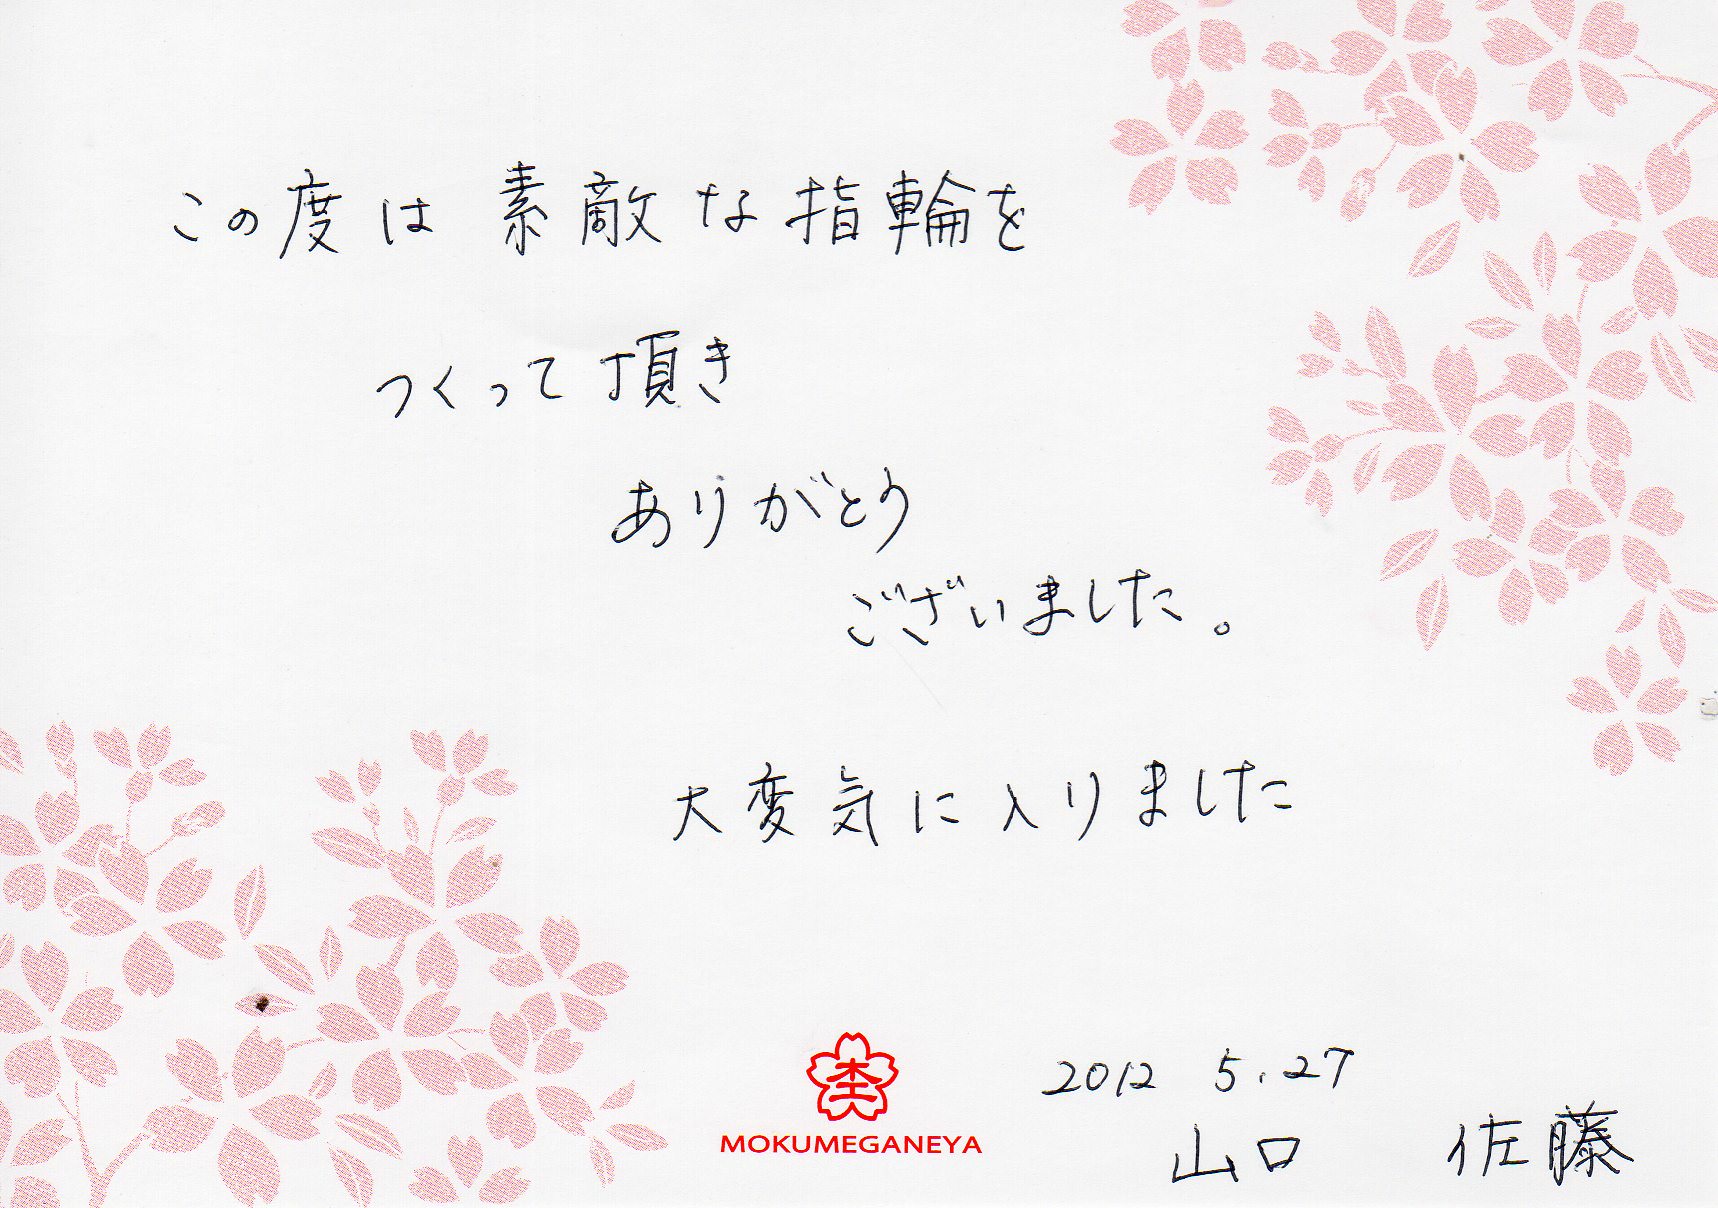 この度は素敵な指輪を
つくって頂き
ありがとう
ございました。
大変気に入りました
MOKUMEGANEYA
2012 5.27
山口 佐藤